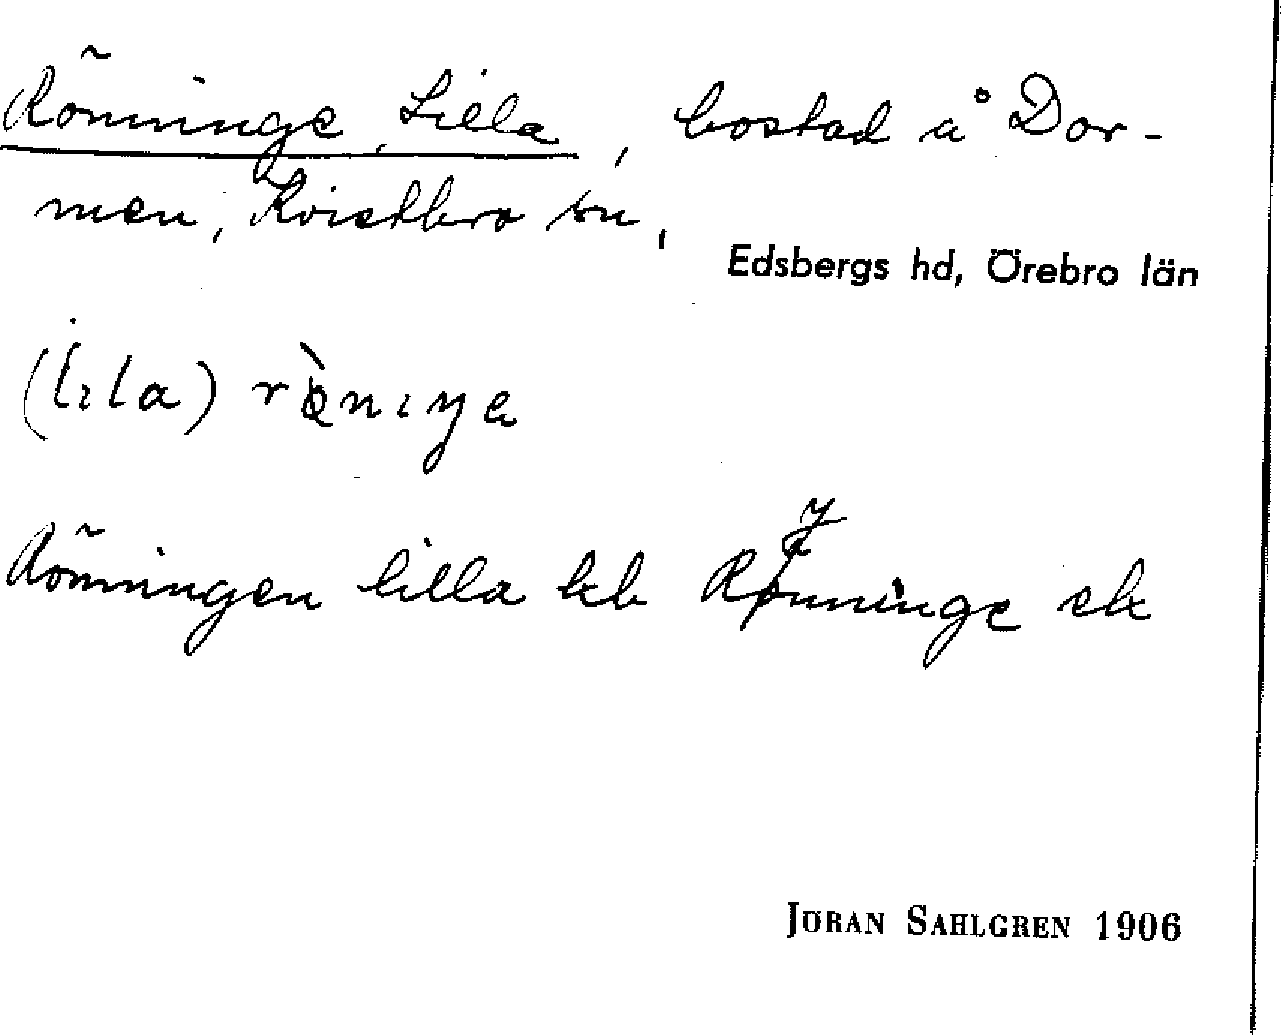 Rönninge, Lilla, bostad å Dor-
men, Kvistbro sn,
Edsbergs hd, Örebro län
(lila)
Rönningen lilla kb Rönninge sk
JÖRAN SAHLGREN 1906